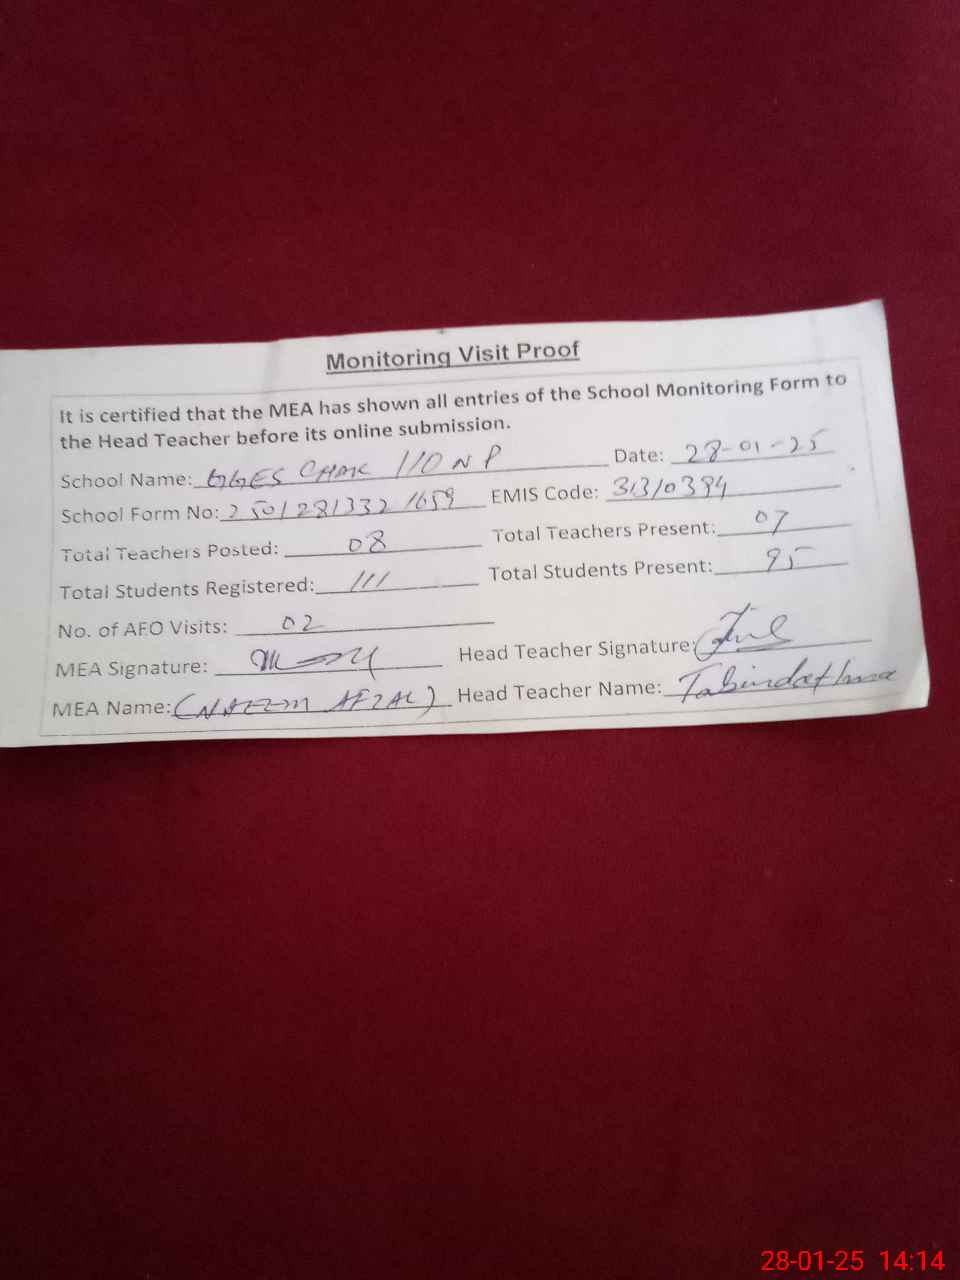 Monitoring Visit Proof
It is certified that the MEA has shown all entries of the School Monitoring Form to
the Head Teacher before its online submission.
School Name: GGES CHAK 110 NP Date: 28-01-25
School Form No: 2501281332 1659 EMIS Code: 31310394
Total Teachers Posted: 08 Total Teachers Present: 07
Total Students Registered: 111 Total Students Present: 95
No. of AEO Visits: 02
MEA Signature: Head Teacher Signature:
MEA Name: (NAEEM AFZAL) Head Teacher Name:
28-01-25 14:14